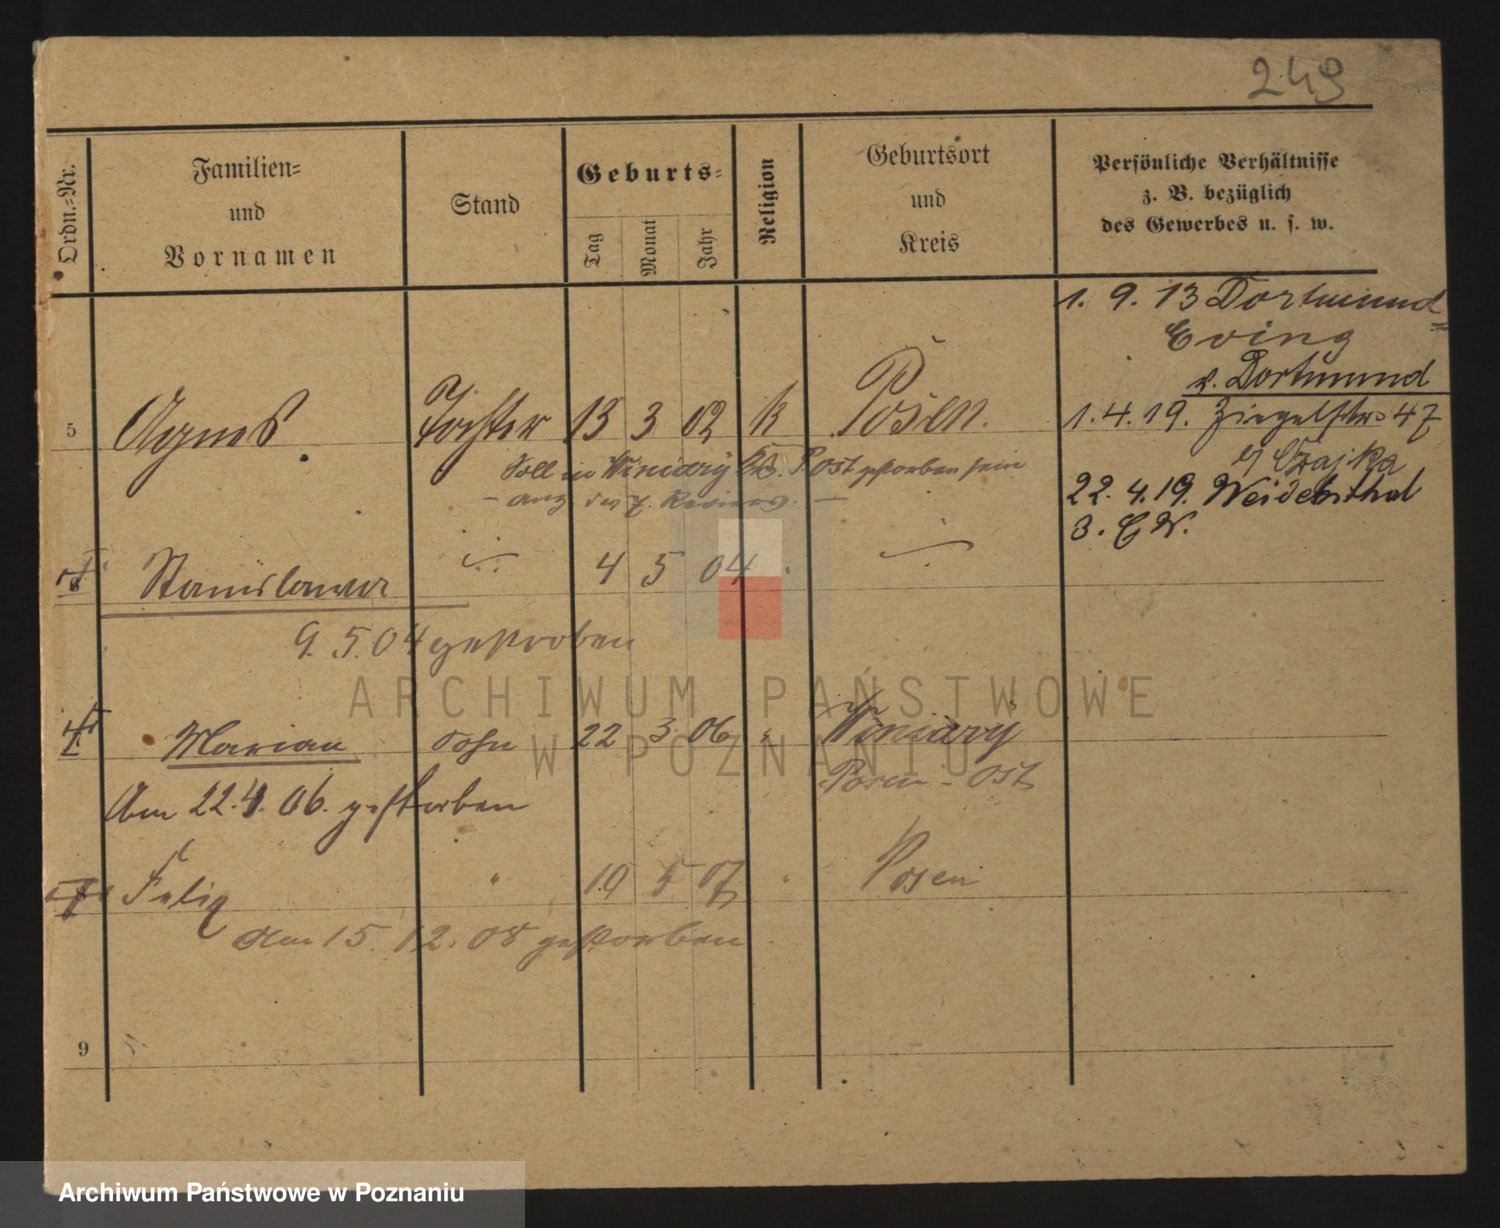 249
Ordn.-Nr.
Familien-
und
Vornamen
Stand
Geburts-
Tag
Monat
Jahr
Religion
Geburtsort
und
Kreis
Persönliche Verhältnisse
z. B. bezüglich
des Gewerbes u. s. w.
1. 9. 13 Dortmund=
Eving
v. Dortmund
5 Agnes Tochter 13 3 02 k Posen.
1. 4. 19. Ziegelstr. 47
b/ Czajka
Soll in Winiary Kr. Post gestorben sein
22. 4. 19. Weidenthal
3. E W.
6 Stanislawa 4 5 04 "
9. 5. 04 gestorben
7 Marian Sohn 22 3 06 " Winiary
Posen-Ost
Am 22. 4. 06. gestorben
Felix " 19 5 07 " Posen
Am 15. 12. 08 gestorben
9
ARCHIWUM PAŃSTWOWE
W POZNANIU
Archiwum Państwowe w Poznaniu